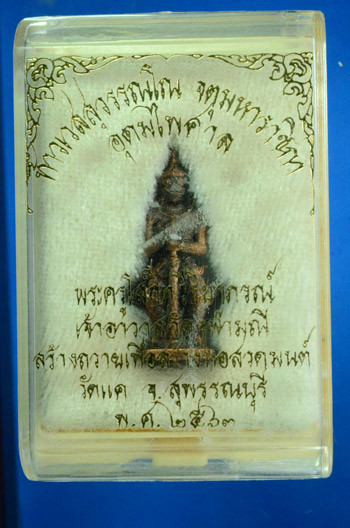 ท้าวเวสสุวรรณโณ จตุมหาราชิกา
อุดมไพศาล
พระครูโสภิตวิริยาภรณ์
เจ้าอาวาส
สร้างถวายเพื่อสร้างหอสวดมนต์
วัดแค จ. สุพรรณบุรี
พ.ศ. ๒๕๖๓